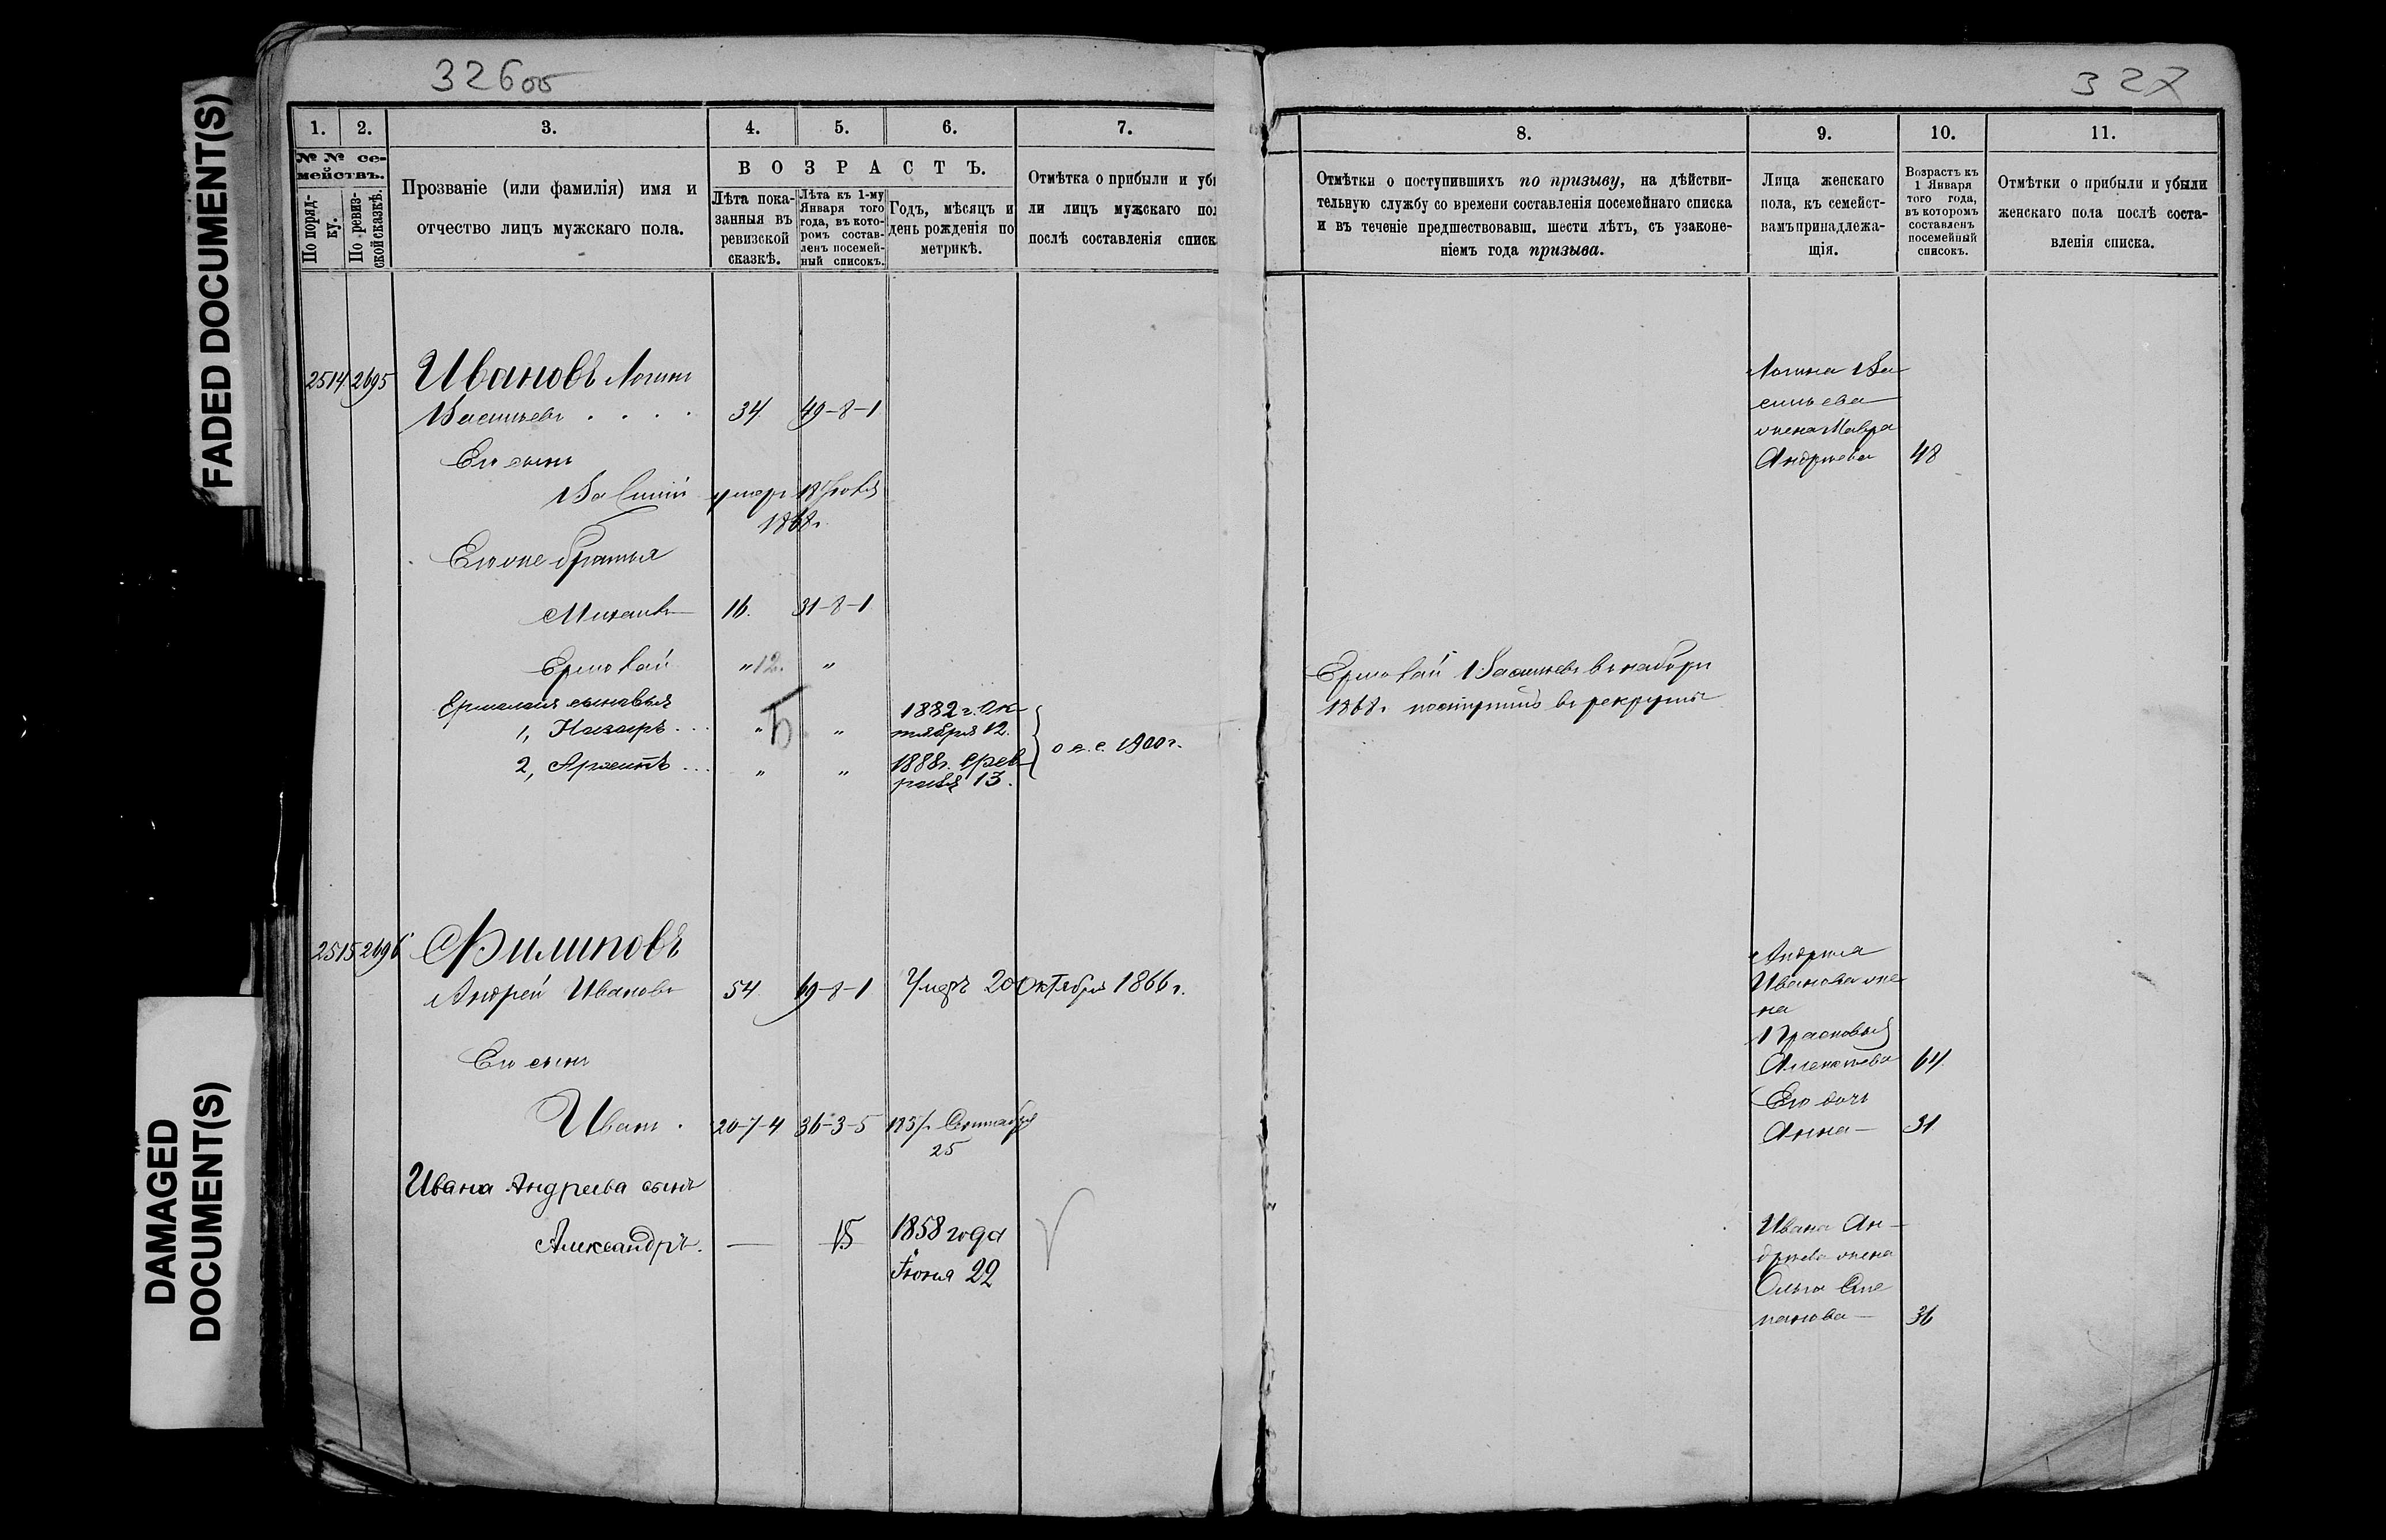 FADED DOCUMENT(S)
DAMAGED
DOCUMENT(S)
326об
1.
2.
3.
4.
5.
6.
7.
№ № се-
мействъ.
По поряд-
ку.
По ревиз-
ской сказкѣ.
Прозваніе (или фамилія) имя и
отчество лицъ мужскаго пола.
ВОЗРАСТЪ.
Лѣта пока-
занныя въ
ревизской
сказкѣ.
Лѣта къ 1-му
Января того
года, въ кото-
ромъ состав-
ленъ посемей-
ный списокъ.
Годъ, мѣсяцъ и
день рожденія по
метрикѣ.
Отмѣтка о прибыли и убы
ли лицъ мужскаго пол
послѣ составленія списк
2514 2695 Ивановъ Логинъ
Васильевъ . . . . 34 49-8-1
Его сынъ
Василій умеръ 18
1868г.
Его же братья
Михаилъ 16. 31-8-1
Ермолай " 12. "
Ермолая сыновья
1, Назаръ . . . " " 1882 г. Ок-
тября 12.
2, Арсентій . . . " " 1888г. Фев-
раля 13.
1900 г.
2515 2696 Филиповъ
Андрей Ивановъ 54. 69-8-1 Умеръ 20 Октября 1866 г.
Его сынъ
Иванъ . 20-7-4 36-3-5 Сентября
25
Ивана Андреева сынъ
Александръ. — 15 1858 года
Іюня 22
327
8.
9.
10.
11.
Отмѣтки о поступившихъ по призыву, на дѣйстви-
тельную службу со времени составленія посемейнаго списка
и въ теченіе предшествовавш. шести лѣтъ, съ узаконе-
ніемъ года призыва.
Лица женскаго
пола, къ семейст-
вамъ принадлежа-
щія.
Возрастъ къ
1 Января
того года,
въ которомъ
составленъ
посемейный
списокъ.
Отмѣтки о прибыли и убыли
женскаго пола послѣ соста-
вленія списка.
Логина Ва-
сильева
жена Мавра
Андреева 48
Ермолай Васильевъ въ наборъ
1868г. поступилъ въ рекруты
Андрея
Иванова же
на
Прасковья
Алексеева 64.
Его дочь
Анна — 31.
Ивана Ан-
дреева жена
Ольга Сте
панова — 36